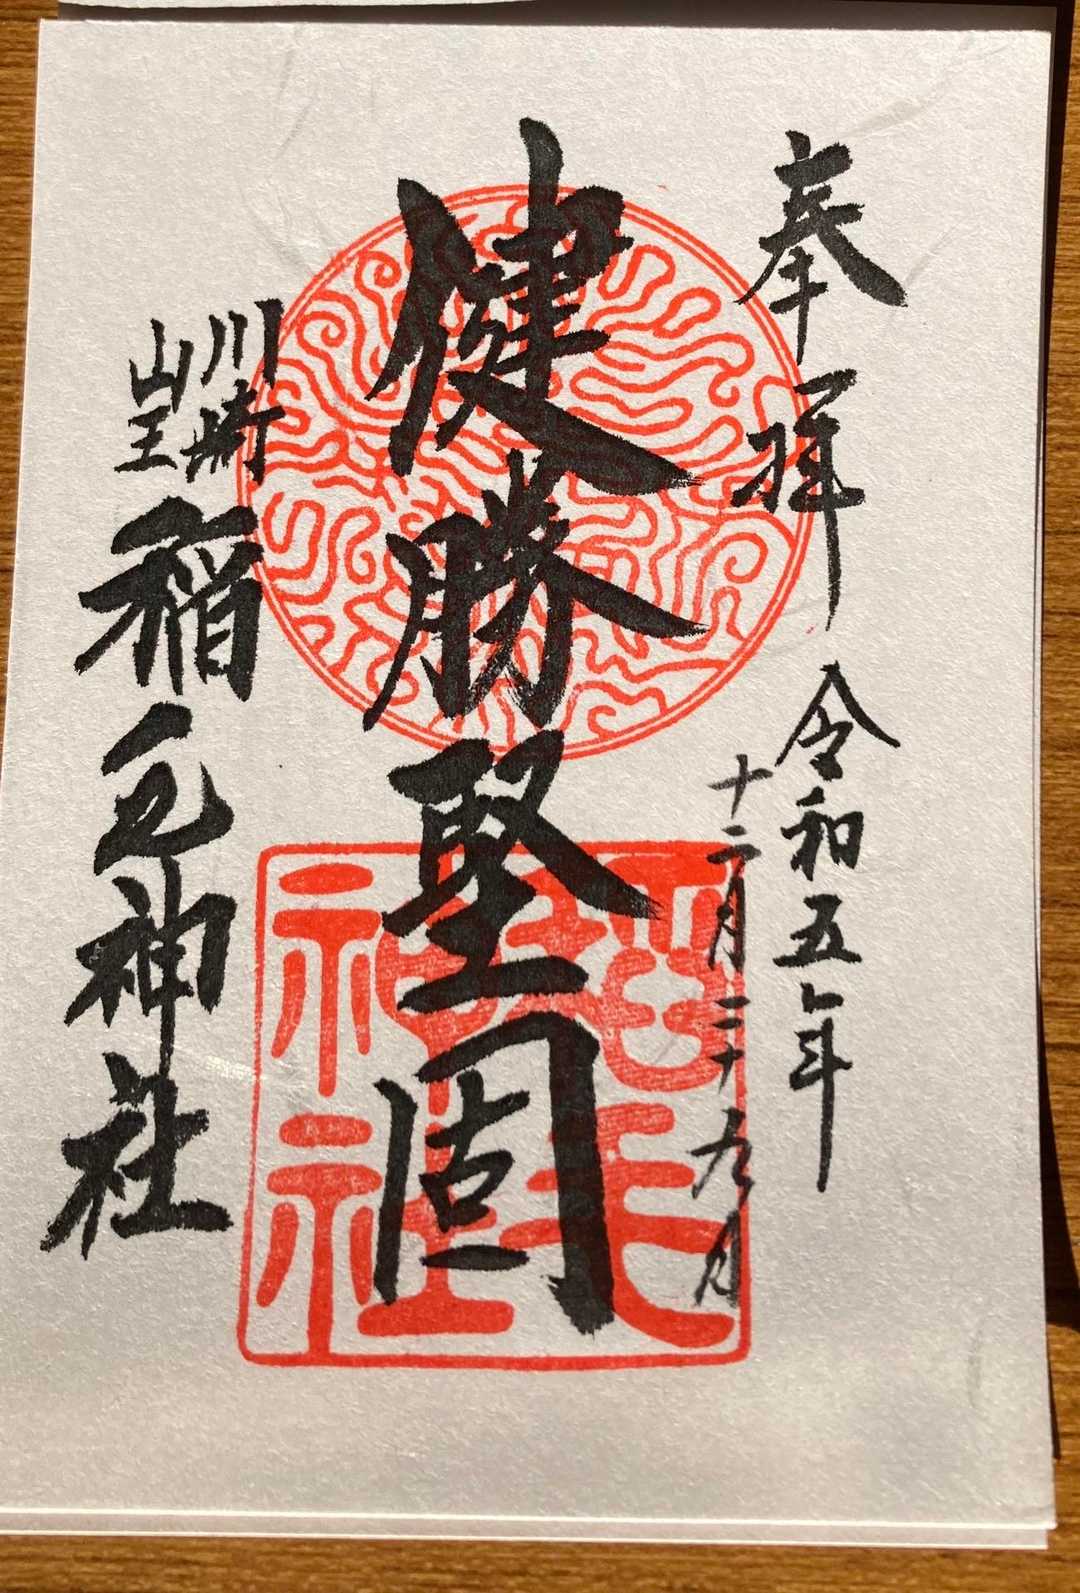 奉拝
令和五年
十二月二十九日
健勝堅固
川崎
山王
稲毛神社
稲毛
神社